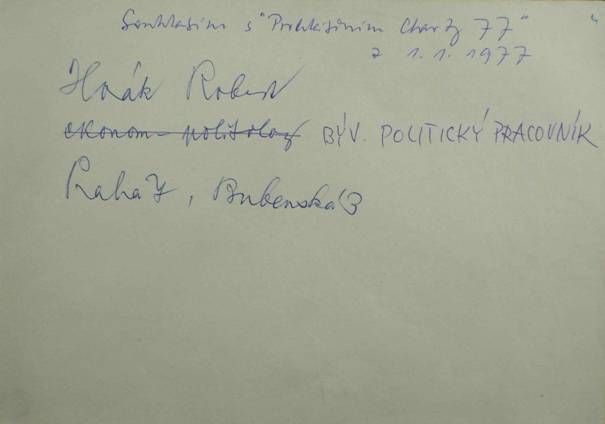 Souhlasím s "Prohlášením Charty 77"
z 1.1.1977
Horák Robert
ekonom - politolog BÝV. POLITICKÝ PRACOVNÍK
Praha 7, Bubenská 3